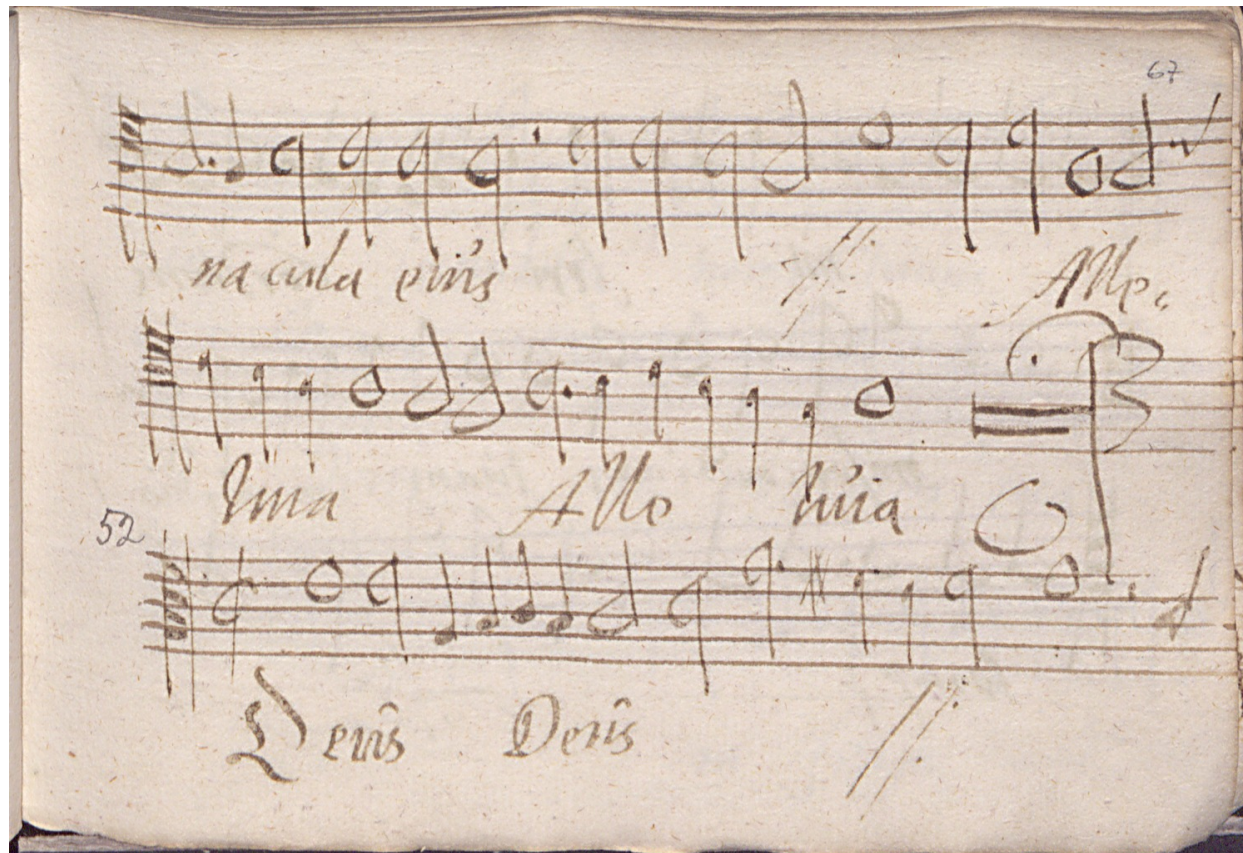 67
nacula eius // Alle
luia Alle luia
52
Deus Deus //